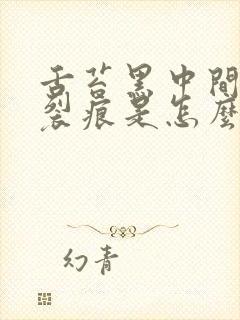 舌苔黑中間
裂痕是怎麼
幻青